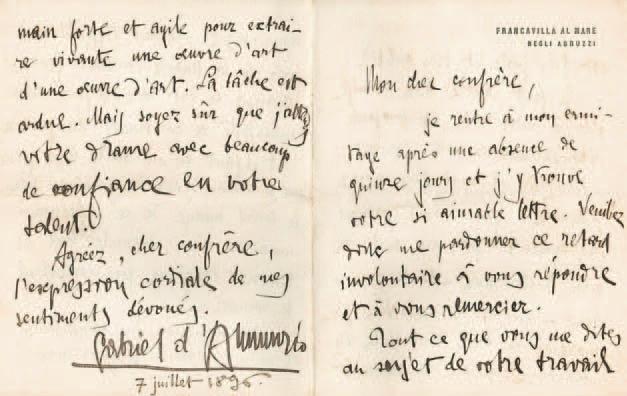 FRANCAVILLA AL MARE
NEGLI ABRUZZI
Mon cher confrère,
je rentre à mon ermi-
tage après une absence de
quinze jours et j'y trouve
votre si aimable lettre. Veuillez
donc me pardonner ce retard
involontaire à vous répondre
et à vous remercier.
Tout ce que vous me dites
au sujet de votre travail
main forte et agile pour extrai-
re vivante une œuvre d'art
d'une œuvre d'art. La tâche est
ardue. Mais soyez sûr que
votre drame avec beaucoup
de confiance en votre
talent.
Agréez, cher confrère,
l'expression cordiale de mes
sentiments dévoués.
Gabriel d'Annunzio
7 juillet 1896.